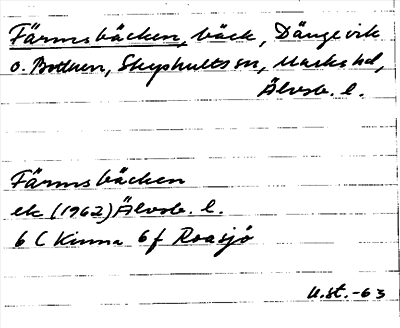 Färmsbäcken, bäck, Dängevik
o. Bottnen, Skephults sn, Marks hd,
Älvsb. l.
Färmsbäcken
ek (1962) Älvsb. l.
6 C Kinna 6 f Roasjö
U.st.-63